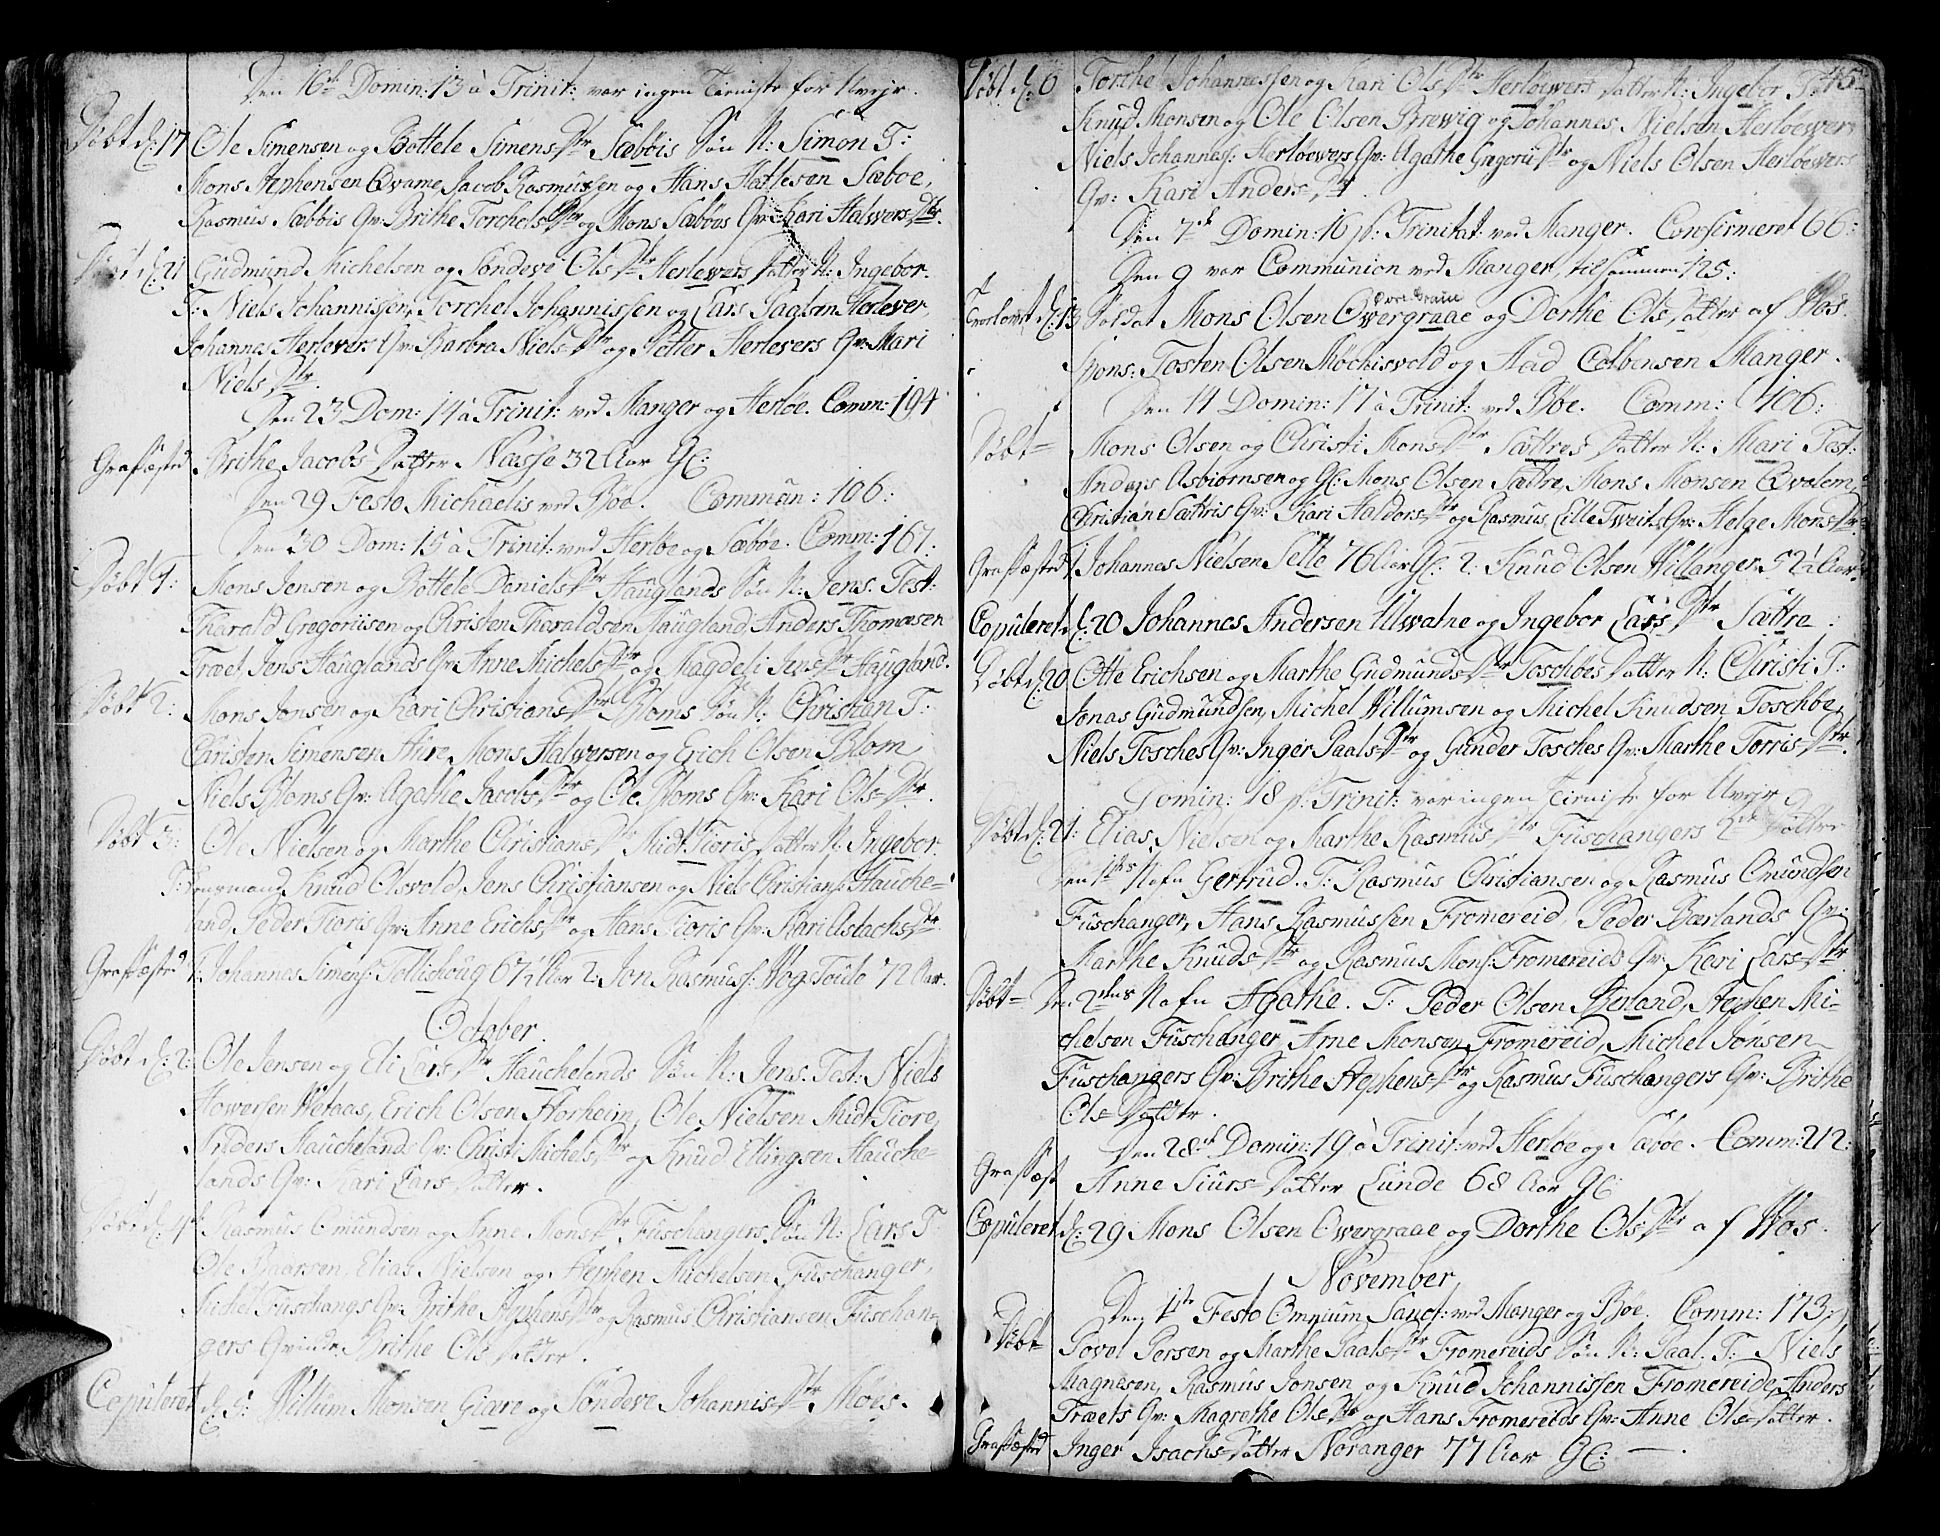 Den 16de Domin: 13 à Trinit: var ingen Tieniste for Uvejr.
Døbt d: 17 Ole Simensen og Bottele Simens Dtr Sæbøis Søn N: Simon T:
Mons Stephensen Qvame, Jacob Rasmussen og Hans Hatlesen Sæboe,
Rasmus Sæbøis Qv: Brithe Torchels Dtr og Mons Sæbøes Qv: Kari Halvers Dtr.
Døbt d: 21 Gudmund Michelsen og Søndeve Ols Dtr Herlevers Datter N: Ingebor.
T: Niels Johannissen, Torchel Johannissen og Lars Paalsen Herlever,
Johannes Herlevers Qv: Barbra Niels Dtr og Petter Herlevers Qv: Mari
Niels Dtr.
Den 23 Dom: 14 à Trinit: ved Manger og Herløe. Comm: 194
Grafæsted Brithe Jacobs Datter Nasse 32 Aar Gl:
Den 29 Festo Michaelis ved Bøe. Commun: 106:
Den 30 Dom: 15 à Trinit: ved Herløe og Sæbøe. Comm: 167:
Døbt 1: Mons Jensen og Bottele Daniels Dtr Hauglands Søn N: Jens. Test:
Tharald Gregoriisen og Christen Tharaldsen Haugland, Anders Thomesen
Træet, Jens Hauglands Qv: Anne Michels Dtr og Magdeli Jens Dtr Haugland.
Døbt 2: Mons Jonsen og Kari Christians Dtr Bloms Søn N: Christian T:
Christen Simensen Hire, Mons Halversen og Erich Olsen Blom,
Niels Bloms Qv: Agathe Jacobs Dtr og Ole Bloms Qv: Kari Ols Dtr.
Døbt 3: Ole Nielsen og Marthe Christians Dtr Midt Tioris Datter N: Ingebor.
T: Knud Olsvold, Jens Christiansen og Niels Christians: Hauche-
land, Peder Tioris Qv: Anne Erichs Dtr og Hans Tioris Qv: Kari Aslachs Dtr.
Grafæsted 1. Johannes Simens: Tollichoug 67½ Aar 2: Jon Rasmus: Toule 72 Aar.
October.
Døbt d: 2: Ole Jensen og Eli Lars Dtr Hauchelands Søn N: Jens. Test: Niels
Howersen Wetaas, Erich Olsen Horheim, Ole Nielsen Midt Tiore,
Anders Hauchelands Qv: Christi Michels Dtr og Knud Ellingsen Hauche-
lands Qv: Kari Lars Datter.
Døbt d: 4de Rasmus Omundsen og Anne Mons Dtr Fuschangers Søn N: Lars T:
Ole Baarsen, Elias Nielsen og Stephen Michelsen Fuschanger,
Michel Fuschangs Qv: Brithe Stephens Dtr og Rasmus Christiansen Fuschan-
gers Qvinde Brithe Ols Datter.
Copuleret d: 5: Willum Monsen Giære og Søndeve Johannis Dtr Moes.
45
Døbt d: 6 Torchel Johannessen og Kari Ols Dtr Herløewers Datter N: Ingebor T:
Knud Monsen og Ole Olsen Brewig og Johannes Nielsen Herløewer,
Niels Johanness: Herløewers Qv: Agathe Gregorii Dtr og Niels Olsen Herløewers
Qv: Kari Anders Dtr.
Den 7de Domin: 16 p: Trinitat: ved Manger. Confirmeret 66:
Den 9 var Communion ved Manger, tilsammen 125:
Trorlovet d: 13 Soldat Mons Olsen Owergraae og Dorthe Ols Datter af Wos.
Spons: Tosten Olsen Mochisvold og Aad Colbensen Manger.
Den 14 Domin: 17 à Trinit: ved Bøe. Comm: 106:
Døbt Mons Olsen og Christi Mons Dtr Sættres Datter N: Mari Test:
Anders Asbiørnsen og Gl: Mons Olsen Sædtre, Mons Monsen Qvalem,
Christian Sættris Qv: Kari Haldors Dtr og Rasmus LilleTweits Qv: Helge Mons Dtr.
Grafæsted 1. Johannes Nielsen Selle 76 Aar Gl: 2. Knud Olsen Willanger 52½ Aar.
Copuleret d: 20 Johannes Andersen Ulvatne og Ingebor Lars Dtr Sættre.
Døbt d: 20 Otte Erichsen og Marthe Gudmunds Dtr Toschøes Datter N: Christi T:
Jonas Gudmundsen, Michel Willumsen og Michel Knudsen Toschøe,
Niels Tosches Qv: Inger Paals Dtr og Gunder Tosches Qv: Marthe Torris Dtr.
Domin: 18 p: Trinit: var ingen Tieniste for Uvejr
Døbt d: 21: Elias Nielsen og Marthe Rasmus Dtr Fuschangers 2de Døttre
Den 1stes Nafn Gertrud. T: Rasmus Christiansen og Rasmus Omundsen
Fuschanger, Hans Rasmussen Fromereid, Peder Bærlands Qv:
Marthe Knuds Dtr og Rasmus Mons: Fromereids Qv: Kari Lars Dtr
Døbt Den 2dens Nafn Agathe. T: Peder Olsen Berland, Stephen Mi-
chelsen Fuschanger, Arne Monsen Fromereid, Michel Jonsen
Fuschangers Qv: Brithe Stephens Dtr og Rasmus Fuschangers Qv: Brithe
Ols Datter.
Den 28de Domin: 19 à Trinit: ved Herløe og Sæbøe. Comm: 212:
Grafæst Anne Siurs Datter Lunde 68 Aar Gl:
Copuleret d: 29 Mons Olsen Owergraae og Dorthe Ols Dtr af Wos.
November.
Den 1ste Festo Omnium Sanct: ved Manger og Bøe. Comm: 173:
Døbt Povel Persen og Marthe Paals Dtr Fromereids Søn N: Paal. T: Niels
Magnesen, Rasmus Jonsen og Knud Johannissen Fromereide, Anders
Træets Qv: Magrethe Ols Dtr og Hans Fromereids Qv: Anne Ols Datter.
Grafæsted Inger Isachs Datter Noranger 77 Aar Gl: